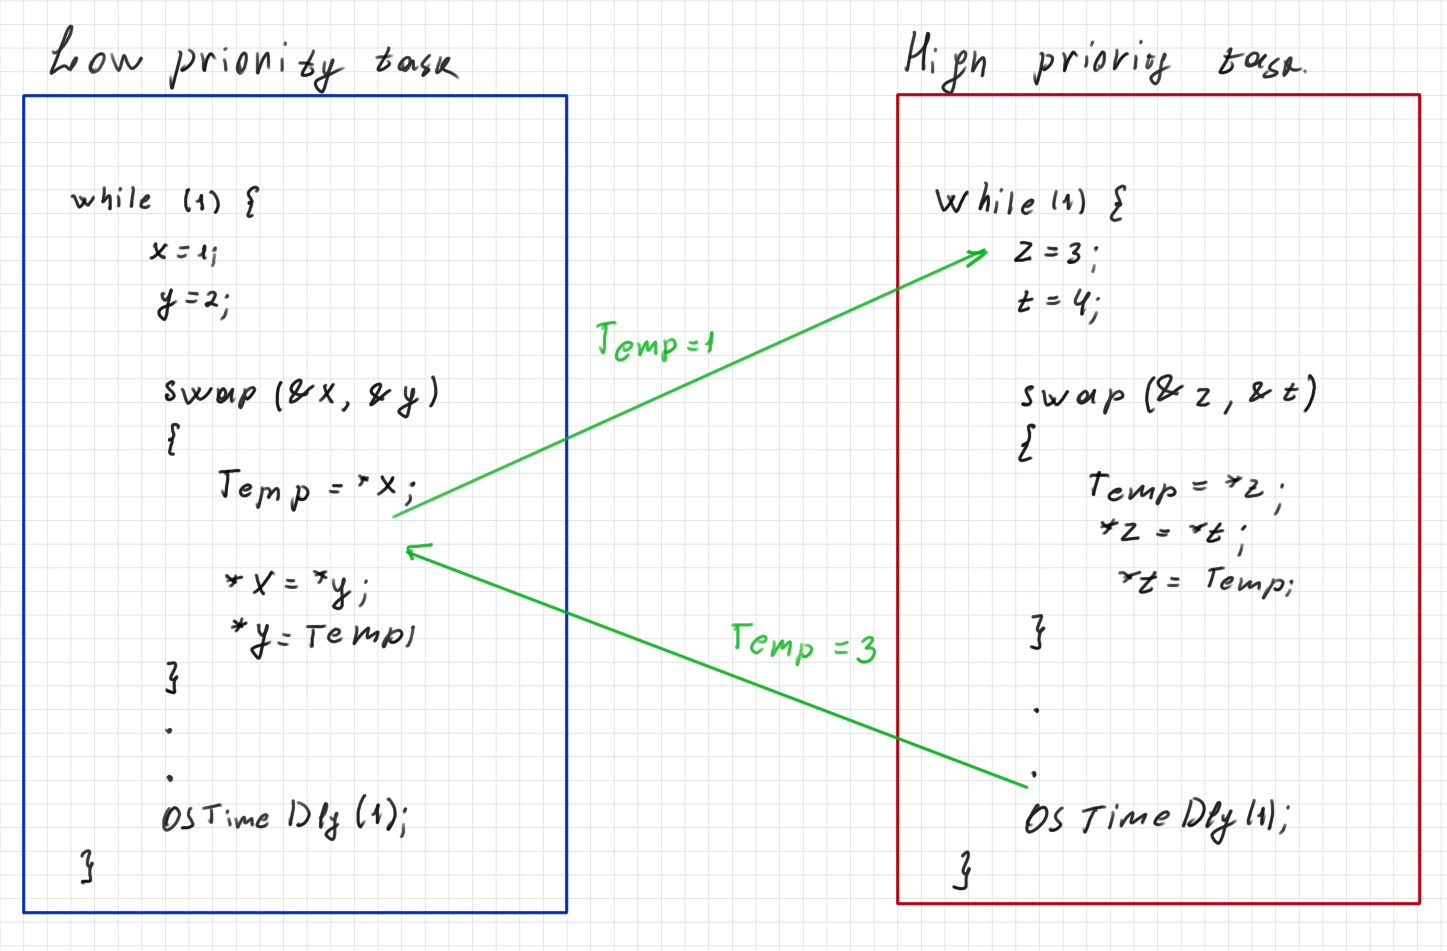 Low priority task
while (1) {
x = 1;
y = 2;
swap (&x, &y)
{
Temp = *x;
*x = *y;
*y = Temp;
}
.
.
OSTimeDly (1);
}
Temp = 1
Temp = 3
High priority task.
while (1) {
z = 3;
t = 4;
swap (&z, &t)
{
Temp = *z;
*z = *t;
*t = Temp;
}
.
.
OSTimeDly (1);
}